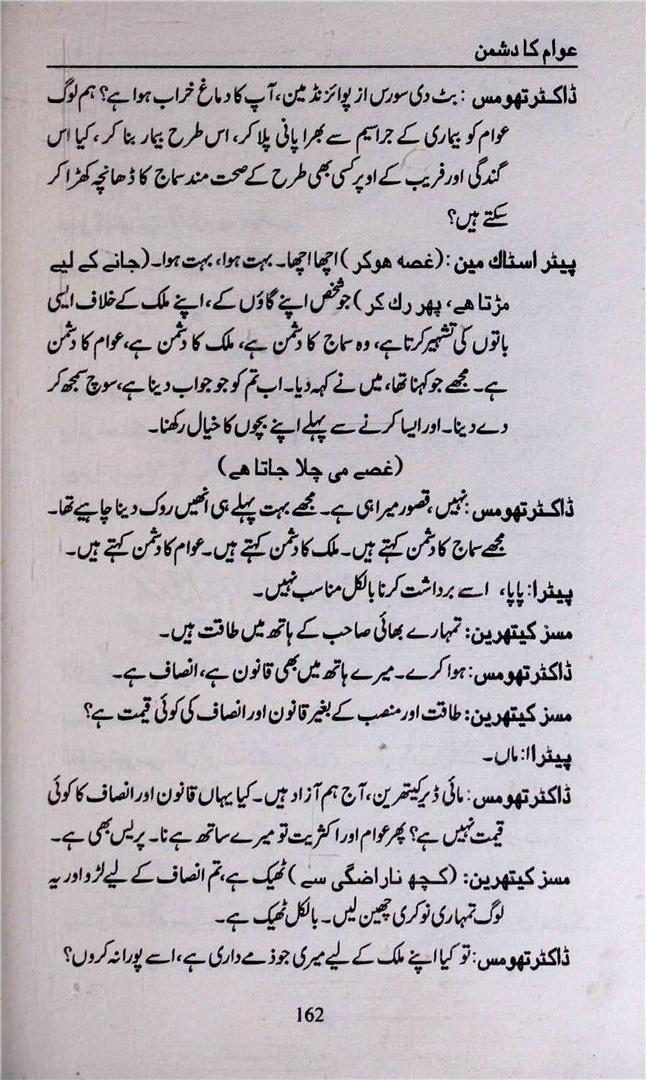 عوام کا دشمن
ڈاکٹر تھومس: بٹ دی سورس از پوائزنڈ مین، آپ کا دماغ خراب ہوا ہے؟ ہم لوگ
عوام کو بیماری کے جراسیم سے بھرا پانی پلا کر، اس طرح بیمار بنا کر، کیا اس
گندگی اور فریب کے اوپر کسی بھی طرح کے صحت مند سماج کا ڈھانچہ کھڑا کر
سکتے ہیں؟
پیٹر اسٹاک مین: (غصہ ہوکر) اچھا اچھا۔ بہت ہوا، بہت ہوا۔ (جانے کے لیے
مڑتا ہے، پھر رک کر) جو شخص اپنے گاؤں کے، اپنے ملک کے خلاف ایسی
باتوں کی تشہیر کرتا ہے، وہ سماج کا دشمن ہے، ملک کا دشمن ہے، عوام کا دشمن
ہے۔ مجھے جو کہنا تھا، میں نے کہہ دیا۔ اب تم کو جو جواب دینا ہے، سوچ سمجھ کر
دے دینا۔ اور ایسا کرنے سے پہلے اپنے بچوں کا خیال رکھنا۔
(غصے می چلا جاتا ہے)
ڈاکٹر تھومس: نہیں، قصور میرا ہی ہے۔ مجھے بہت پہلے ہی انھیں روک دینا چاہیے تھا۔
مجھے سماج کا دشمن کہتے ہیں۔ ملک کا دشمن کہتے ہیں۔ عوام کا دشمن کہتے ہیں۔
پیٹرا: پاپا، اسے برداشت کرنا بالکل مناسب نہیں۔
مسز کیتھرین: تمہارے بھائی صاحب کے ہاتھ میں طاقت ہیں۔
ڈاکٹر تھومس: ہوا کرے۔ میرے ہاتھ میں بھی قانون ہے، انصاف ہے۔
مسز کیتھرین: طاقت اور منصب کے بغیر قانون اور انصاف کی کوئی قیمت ہے؟
پیٹراا: ماں۔
ڈاکٹر تھومس: مائی ڈیر کیتھرین، آج ہم آزاد ہیں۔ کیا یہاں قانون اور انصاف کا کوئی
قیمت نہیں ہے؟ پھر عوام اور اکثریت تو میرے ساتھ ہے نا۔ پریس بھی ہے۔
مسز کیتھرین: (کچھ ناراضگی سے) ٹھیک ہے، تم انصاف کے لیے لڑو اور یہ
لوگ تمہاری نوکری چھین لیں۔ بالکل ٹھیک ہے۔
ڈاکٹر تھومس: تو کیا اپنے ملک کے لیے میری جو ذمے داری ہے، اسے پورا نہ کروں؟
162